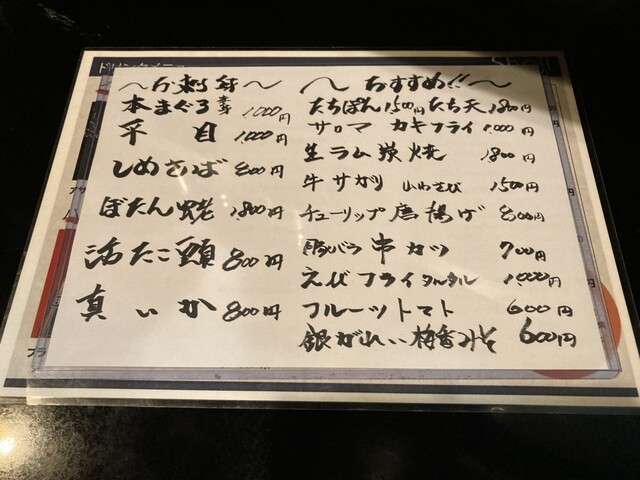 ドリンクメニュー
〜お刺身〜
本まぐろ 1000円
平目 1,000円
しめさば 800円
ぼたん海老 1800円
活たこ頭 800円
真いか 800円
〜おすすめ!!〜
たちぽん 1500円 たち天 1800円
サロマ カキフライ 1,000円
生ラム炭焼 1800円
牛サガリ 山わさび 1500円
チューリップ唐揚げ 800円
豚バラ串カツ 700円
えびフライタルタル 1,000円
フルーツトマト 600円
銀がれい梅香みそ 600円